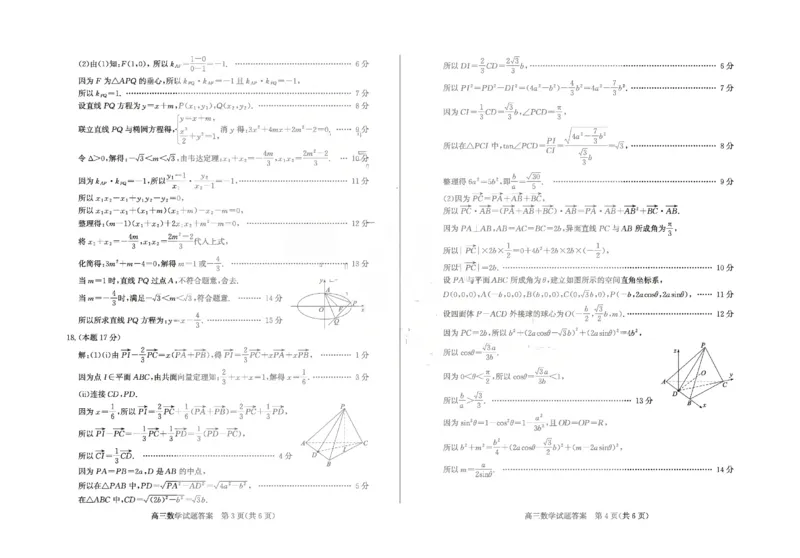 (2)由(1)知:F(1,0),所以k_{AF}=\frac{1-0}{0-1}=-1. ……6分
因为F为△APQ的垂心,所以k_{PQ}·k_{AF}=-1且k_{AP}·k_{FQ}=-1,
所以k_{PQ}=1. ……7分
设直线PQ方程为y=x+m,P(x₁,y₁),Q(x₂,y₂). ……8分
联立直线PQ与椭圆方程得,\begin{cases}y=x+m,\\\frac{x^2}{2}+y^2=1,\end{cases}消y得:3x²+4mx+2m²-2=0, ……9分
令Δ>0,解得:-√3<m<√3,由韦达定理,x₁+x₂=-\frac{4m}{3},x₁x₂=\frac{2m²-2}{3}. …10分
因为k_{AP}·k_{FQ}=-1,所以\frac{y₁-1}{x₁}·\frac{y₂}{x₂-1}=-1. ……11分
所以x₁x₂-x₁+y₁y₂-y₂=0,
所以x₁x₂-x₁+(x₁+m)(x₂+m)-x₂-m=0,
整理得:(m-1)(x₁+x₂)+2x₁x₂+m²-m=0, ……12分
将x₁+x₂=-\frac{4m}{3},x₁x₂=\frac{2m²-2}{3}代入上式,
化简得:3m²+m-4=0,解得m=1或-\frac{4}{3}. ……13分
当m=1时,直线PQ过点A,不符合题意,舍去.
当m=-\frac{4}{3}时,满足-√3<m<√3,符合题意. ……14分
所以所求直线PQ方程为:y=x-\frac{4}{3}. ……15分
y
A
O
F
P
x
Q
18.(本题17分)
解:(1)(i)由\vec{PI}-\frac{2}{3}\vec{PC}=x(\vec{PA}+\vec{PB}),得\vec{PI}=\frac{2}{3}\vec{PC}+x\vec{PA}+x\vec{PB}, ……1分
因为点I∈平面ABC,由共面向量定理知:\frac{2}{3}+x+x=1,解得x=\frac{1}{6}. ……3分
(ii)连接CD,PD.
因为x=\frac{1}{6},所以\vec{PI}=\frac{2}{3}\vec{PC}+\frac{1}{6}(\vec{PA}+\vec{PB})=\frac{2}{3}\vec{PC}+\frac{1}{3}\vec{PD},
所以\vec{PI}-\vec{PC}=-\frac{1}{3}\vec{PC}+\frac{1}{3}\vec{PD}=\frac{1}{3}(\vec{PD}-\vec{PC}),
所以\vec{CI}=\frac{1}{3}\vec{CD}. ……4分
因为PA=PB=2a,D是AB的中点,
所以在△PAB中,PD=\sqrt{PA²-AD²}=\sqrt{4a²-b²}, ……5分
在△ABC中,CD=\sqrt{(2b)²-b²}=√3b.
P
A
C
D
I
B
高三数学试题答案 第3页(共6页)
所以DI=\frac{2}{3}CD=\frac{2√3}{3}b, ……6分
所以PI²=PD²-DI²=(4a²-b²)-\frac{4}{3}b²=4a²-\frac{7}{3}b². ……7分
因为CI=\frac{1}{3}CD=\frac{√3}{3}b,∠PCD=\frac{π}{3},
所以在△PCI中,tan∠PCD=\frac{PI}{CI}=\frac{\sqrt{4a²-\frac{7}{3}b²}}{\frac{√3}{3}b}=√3, ……8分
整理得6a²=5b²,即\frac{b}{a}=\frac{√30}{5}. ……9分
(2)因为\vec{PC}=\vec{PA}+\vec{AB}+\vec{BC},
所以\vec{PC}·\vec{AB}=(\vec{PA}+\vec{AB}+\vec{BC})·\vec{AB}=\vec{PA}·\vec{AB}+\vec{AB}²+\vec{BC}·\vec{AB}.
因为PA⊥AB,AB=AC=BC=2b,异面直线PC与AB所成角为\frac{π}{3},
所以|\vec{PC}|×2b×\frac{1}{2}=0+4b²+2b×2b×(-\frac{1}{2}),
所以|\vec{PC}|=2b. ……10分
设PA与平面ABC所成角为θ,建立如图所示的空间直角坐标系,
D(0,0,0),A(-b,0,0),B(b,0,0),C(0,√3b,0),P(-b,2acosθ,2asinθ), ……11分
设四面体P-ACD外接球的球心为O(-\frac{b}{2},\frac{√3}{2}b,m). ……12分
因为PC=2b,所以b²+(2acosθ-√3b)²+(2asinθ)²=4b²,
所以cosθ=\frac{√3a}{3b}.
因为0<θ<\frac{π}{2},所以cosθ=\frac{√3a}{3b}<1,
所以\frac{b}{a}>\frac{√3}{3}. ……13分
因为sin²θ=1-cos²θ=1-\frac{a²}{3b²},且OD=OP=R,
所以b²+m²=\frac{b²}{4}+(2acosθ-\frac{√3}{2}b)²+(m-2asinθ)²,
所以m=\frac{a}{2sinθ}. ……14分
z
P
O
y
A
C
D
B
x
高三数学试题答案 第4页(共6页)